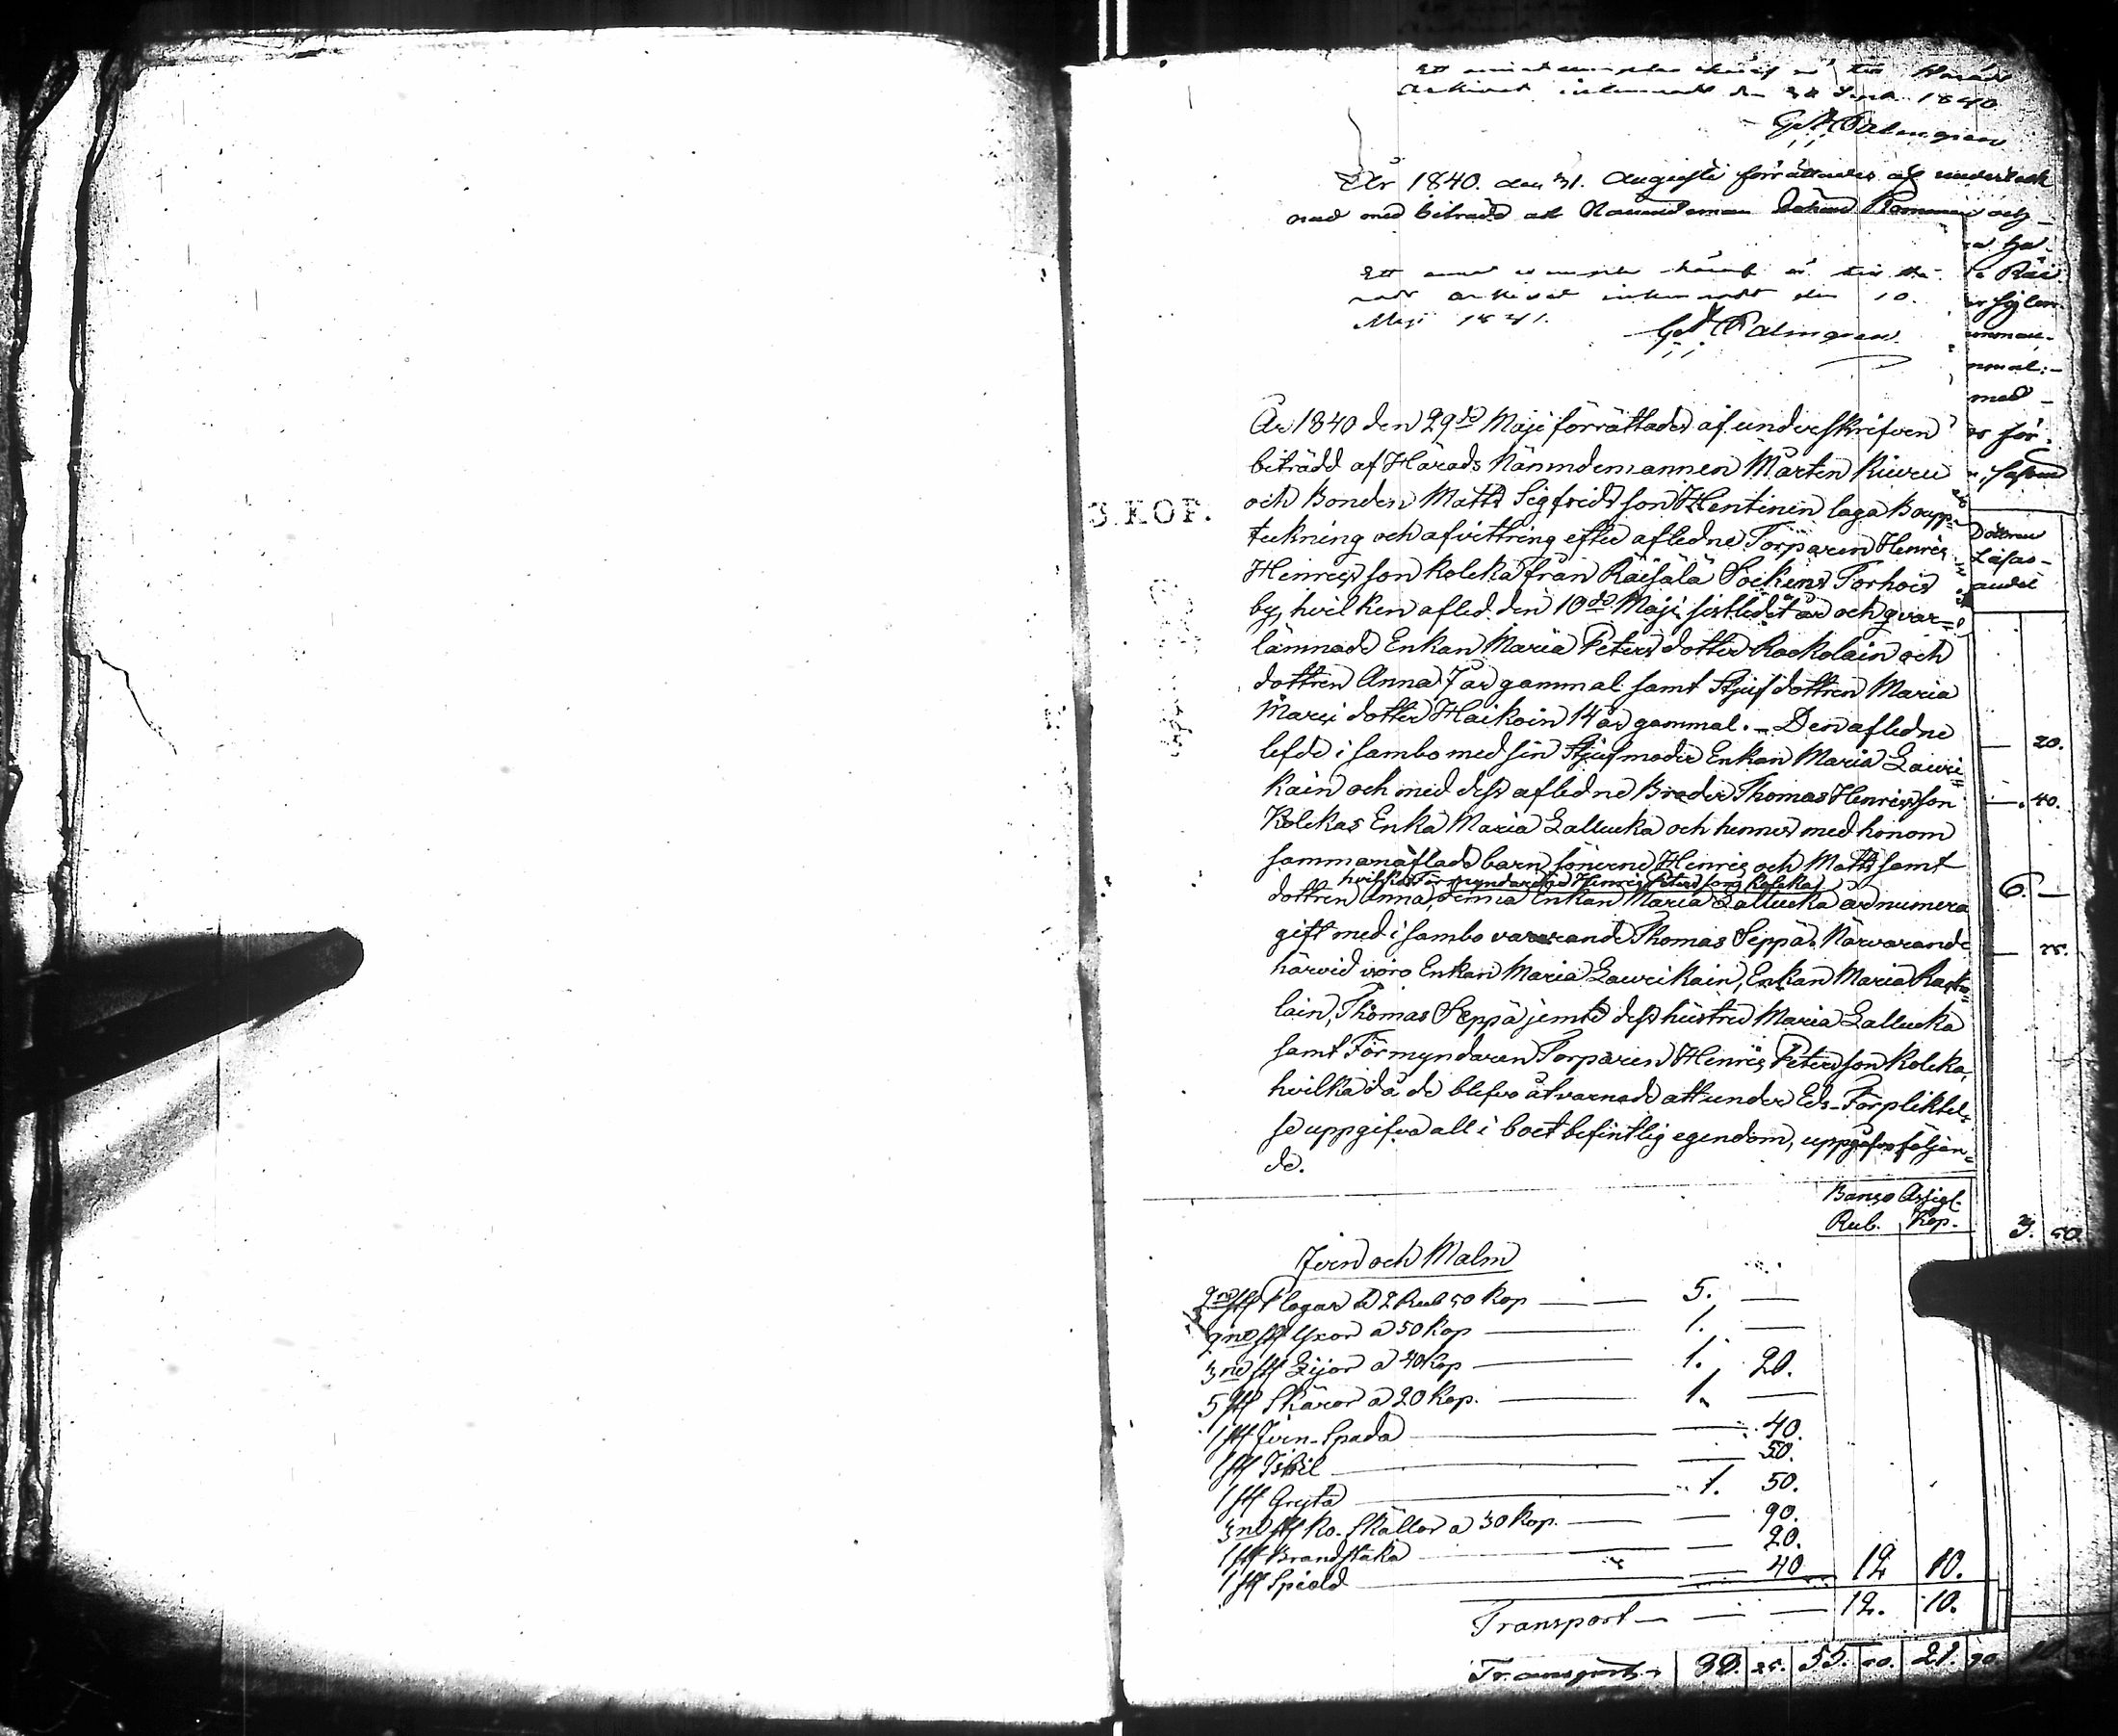 Ett annat exemplar häraf är till Härads
Arkivet inlemnadt den 30 Sept. 1840
Gst Palmgren
År 1840. den 31. Augusti förrättades af underteck
nad med biträde af Nämndeman Johan och
Ett annat exemplar häraf är till Hä-
rads Arkivet inlemnadt den 10.
Maji 1841.
Gst Palmgren
3. KOP.
År 1840 den 29de Maji förrättades af underskrifven
biträdd af Härads Nämndemannen Mårten Kiuru
och Bonden Matts Sigfridsson Hentinen laga Boupp=
tekning och afvittring efter afledne Torparen Henric
Henricsson Kolcka från Räisälä Sockens Torhois
by, hvilken afled den 10de Maji sistledit år och qvar=
lämnade Enkan Maria Petersdotter Rockolain och
dottren Anna 7 år gammal samt Stjufdottren Maria
Marci dotter Haikoin 14 år gammal. - Den afledne
lefde i sambo med sin Stjufmoder Enkan Maria Lauri=
kain och med dess afledne Broder Thomas Henricsson
Kolckas Enka Maria Lallucka och hennes med honom
sammanaflade barn sönerne Henric och Matts samt
hvilkas Förmyndare är Henric Petersson Kolcka
dottren Anna, denna Enkan Maria Lallucka är numera
gift med i sambo varande Thomas Seppä. Närvarande
härvid voro Enkan Maria Laurikain, Enkan Maria Racko=
lain, Thomas Seppä jemte dess hustru Maria Lallucka
samt Förmyndaren Torparen Henric Petersson Kolcka,
hvilka då de blefvo åtvarnade att under Eds-Förpliktel=
se uppgifva all i boet befintlig egendom, uppgåfvo följan=
de.
Banco Assigt.
Rub. Kop.
Jern och Malm
2ne st Plogar a 2 Rub 50 Kop 5. —
2ne st Yxor a 50 Kop 1. —
3ne st Lijor a 40 Kop 1. 20.
5 st Skäror a 20 Kop. 1. —
1 st Jern-Spada — 40.
1 st Isbil — 50.
1 st Gryta 1. 50.
3ne st Ko-Skällor a 30 Kop. — 90.
1 st Brandstaka — 20.
1 st Spiäld — 40 12 10.
Transport — — 12. 10.
Transport 39. 25. 55. 60. 21. 90
Dottren
andel
20.
40.
6. —
75.
3. 50.